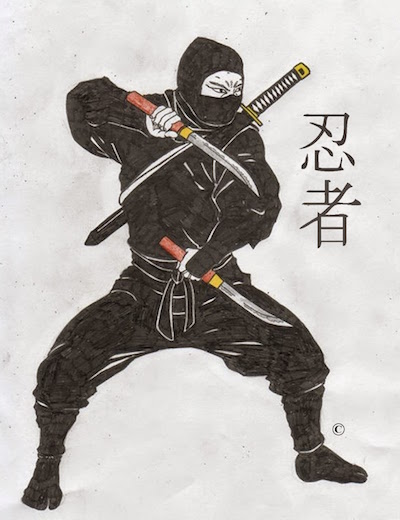 忍者
©